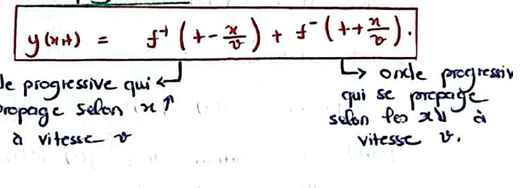 y(x,t) = f⁺(t - x/v) + f⁻(t + x/v).
de progressive qui
propage selon x ↑
à vitesse v
onde progressiv
qui se propage
selon les x ↓ à
vitesse v.